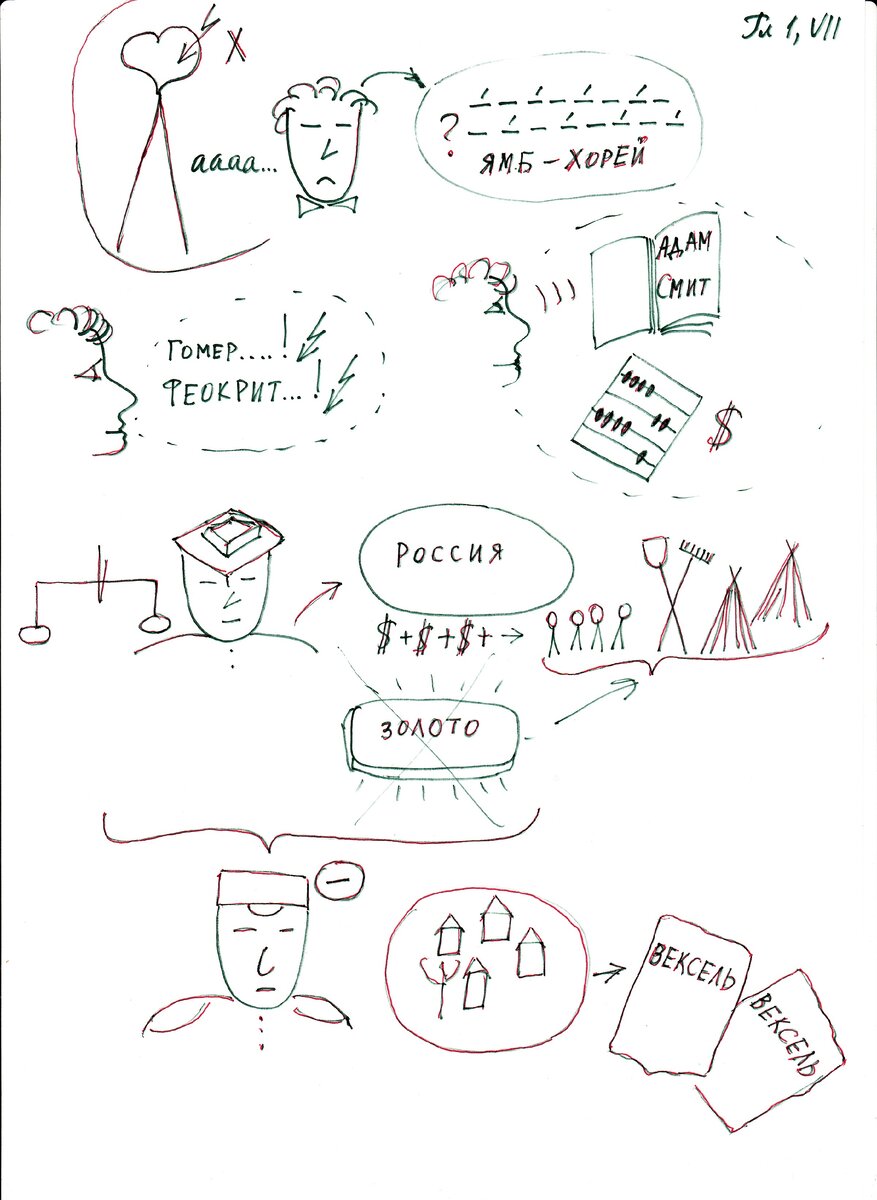 Гл 1, VII
X
аааа...
?
ЯМБ – ХОРЕЙ
АДАМ
СМИТ
ГОМЕР....!
ФЕОКРИТ...!
$
РОССИЯ
$+$+$+→
ЗОЛОТО
ВЕКСЕЛЬ
ВЕКСЕЛЬ